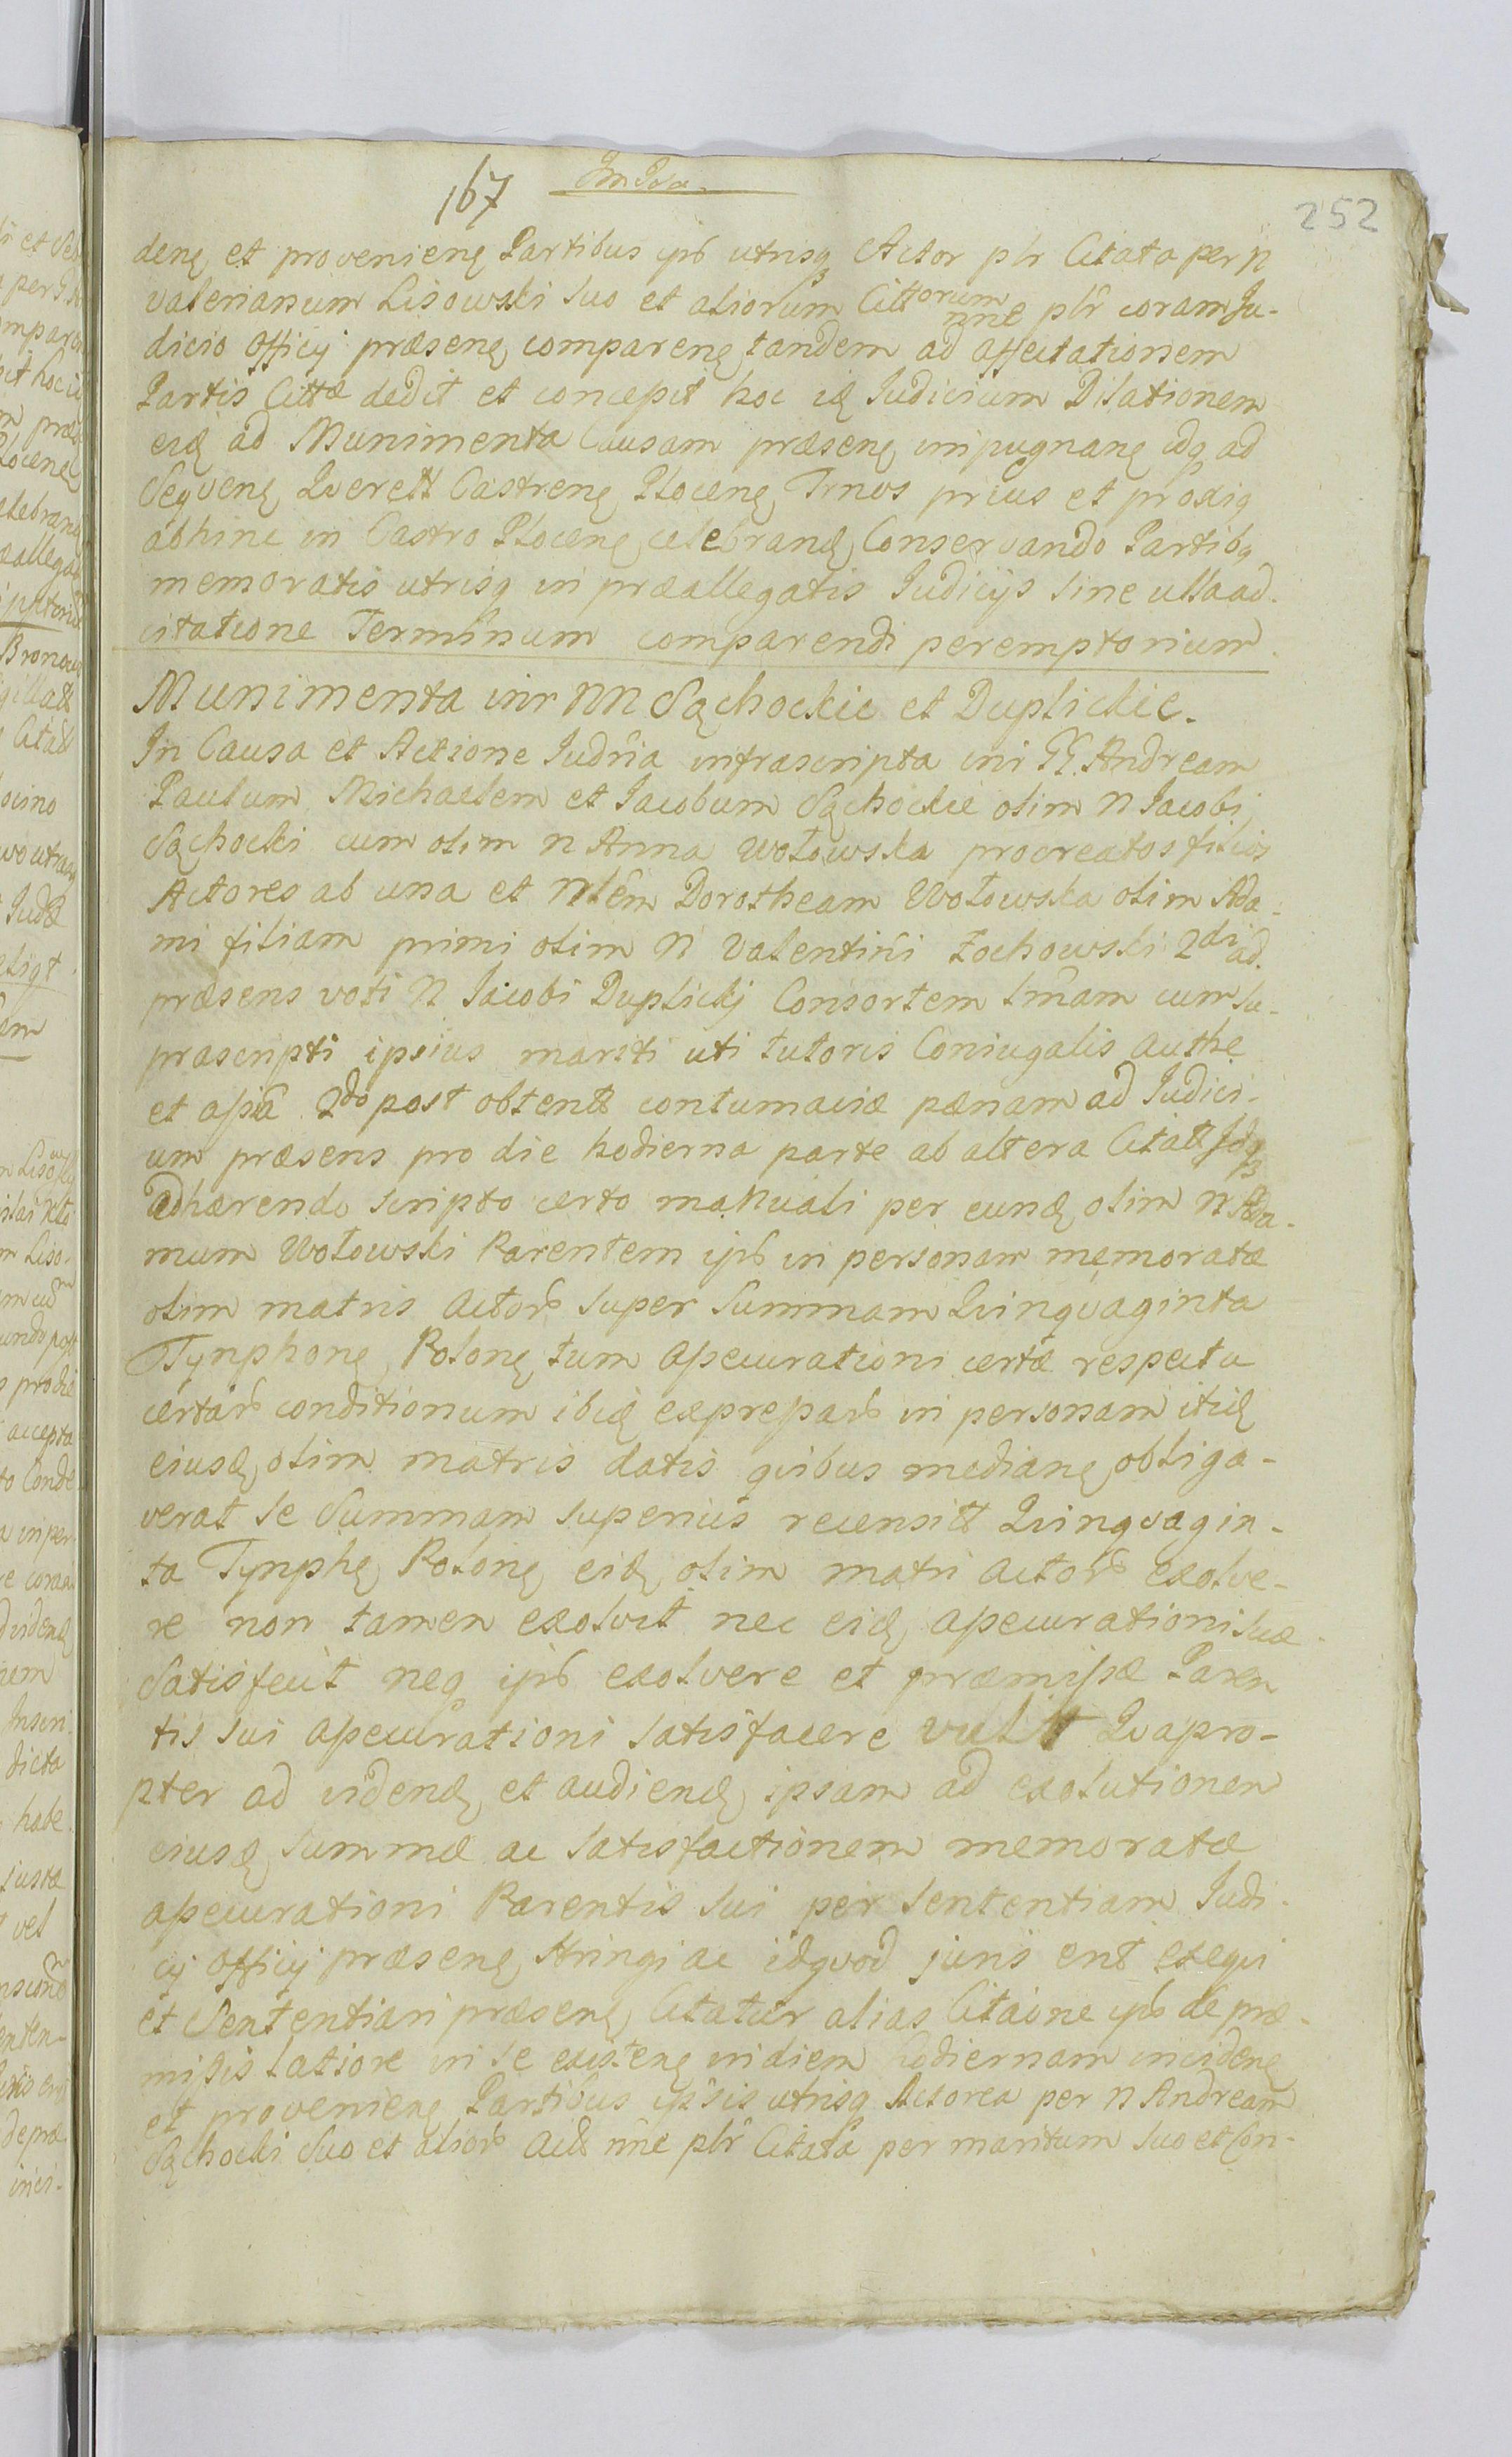 167
252
denę et provenienę Partibus ipīs utrisq Actor plr Citata per N
Valerianum Lisowski suo et aliorum Cittorum nne plr coram Ju-
dicio Officij præsenę comparenę tandem ad affectationem
Partis Cittæ dedit et concepit hoc idę Judicium Dilationem
eidę ad Munimenta Causam præsenę impugnanę idq ad
Seqvenę Qverell Castrenę Plocenę Trnos prius et proxię
abhinc in Castro Plocenę celebrandę Conservando Partibę
memoratis utrisq in præallegatis Judicijs sine ulla ad-
citatione Terminum comparendi peremptorium
Munimenta inr NN Sąchockie et Duplickie.
In Causa et Actione Judria infrascripta inr GG. Andream
Paulum Michaelem et Jacobum Sąchockie olim N Jacobi
Sąchocki cum olim N Anna Wołowska procreatos filios
Actores ab una et Nlem Dorotheam Wołowska olim Ada-
mi filiam primi olim N Valentini Żochowski 2di ad
præsens voti N Jacobi Duplickj Consortem ltmam cum su-
prascripti ipsius mariti uti tutoris Coniugalis authe
et assa 2do post obtentt contumaciæ pænam ad Judici-
um præsens pro die hodierna parte ab altera Citatt Idq
adhærendo scripto certo manuali per eundę olim N Ada-
mum Wołowski Parentem ipīs in personam memoratæ
olim matris Actorū super Summam Qvinqvaginta
Tynphonę Polonę tum assecurationi certæ respectu
certarū conditionum ibidę expressarū in personam itidę
eiusdę olim matris datis qvibus medianę obliga-
verat se Summam superius recensitt Qvinqvagin-
ta Tynphę Polonę eidę olim matri Actorū exolve-
re non tamen exolvit nec eidę assecurationi suæ
satisfecit neq ipīs exolvere et præmissæ Paren
tis sui assecurationi satisfacere vult Qvapro-
pter ad videndę et audiendę ipsam ad exolutionem
eiusdę Summæ ac satisfactionem memoratæ
assecurationi Parentis sui per Sententiam Judi-
cij Officij præsenę stringi ac idqvod juris erit exeqvi
et Sententiari præsenę Citatur alias Citaōne ipīs de præ-
missis latiore in se existenę in diem hodiernam incidenę
et provenienę Partibus ipsis utrisq Actorea per N Andream
Sąchocki suo et aliorū Actt nne plr Citata per maritum suo et Con-